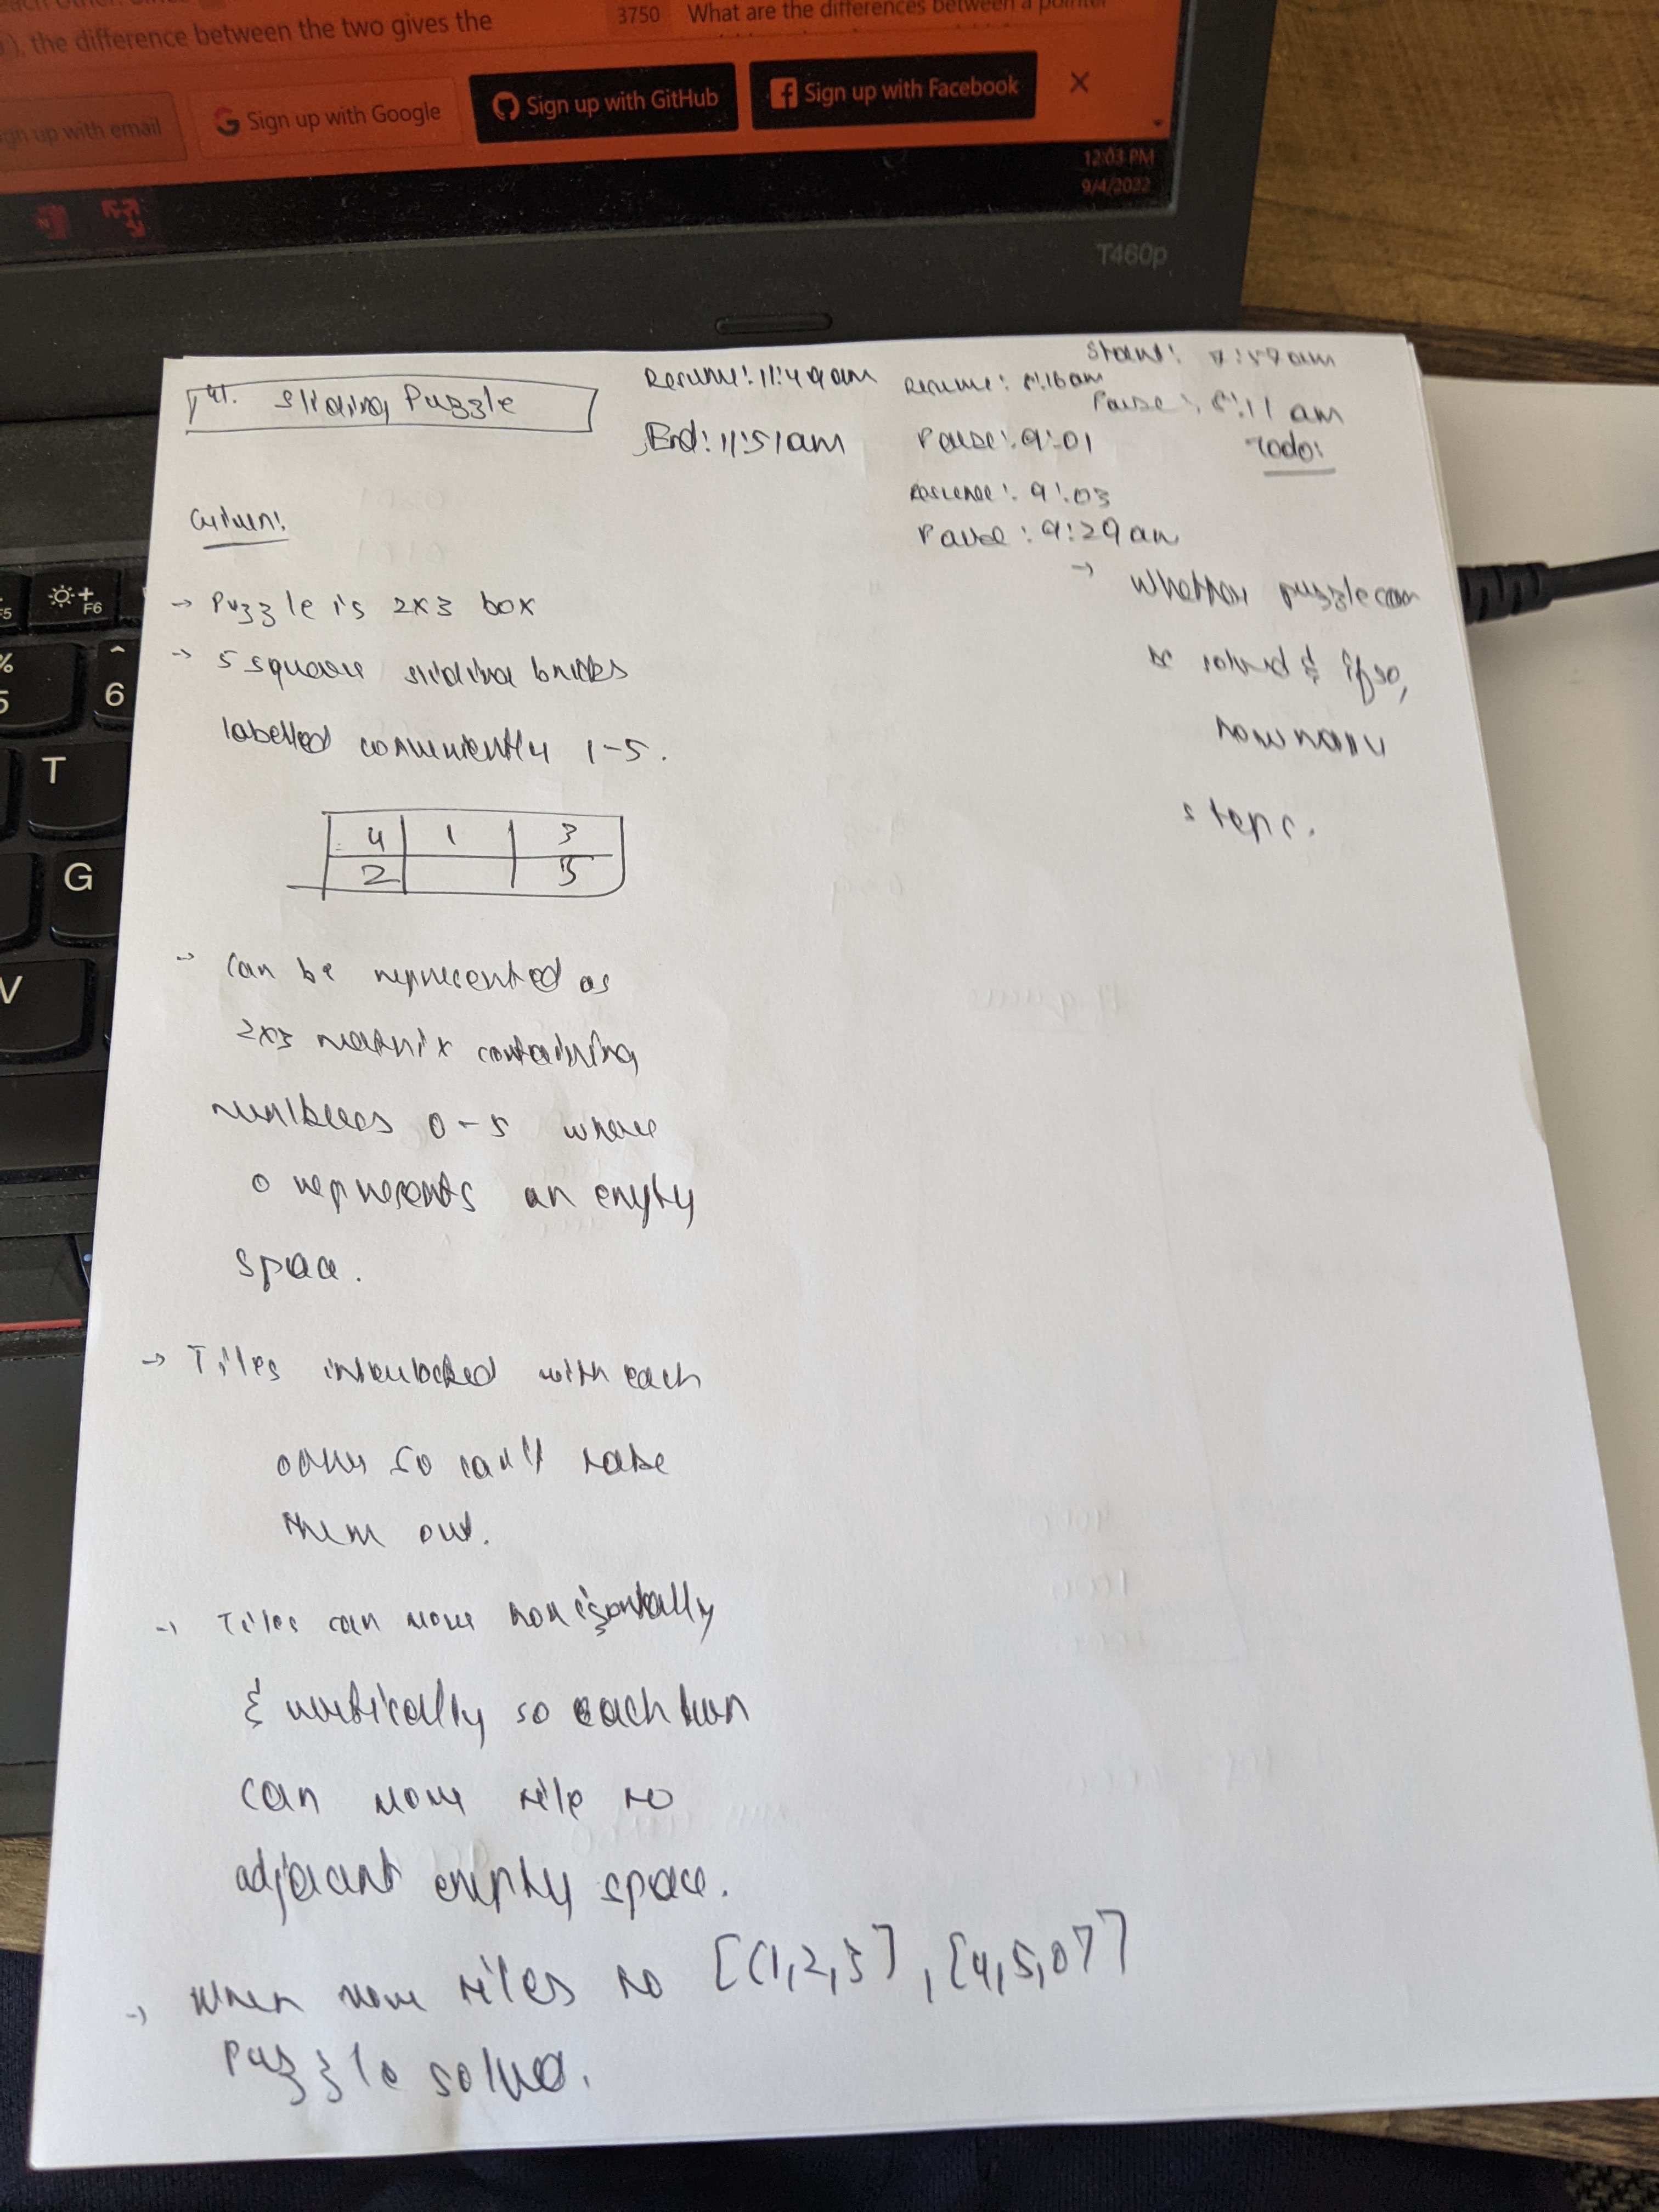 ), the difference between the two gives the
3750 What are the differences between a pointer
gn up with email
Sign up with Google
Sign up with GitHub
Sign up with Facebook
12:03 PM
9/4/2022
T460p
F5
F6
%
5
^
6
T
G
V
41. Sliding Puzzle
Resume: 11:49am
End: 11:51am
Resume: 8:16am
Pause: 9:01
Resume: 9:03
Pause: 9:29am
Start: 7:59am
Pause: 8:11 am
Todo:
→ Whether puzzle can
be solved & if so,
how many
steps.
Given:
→ Puzzle is 2x3 box
→ 5 square sliding bricks
labelled conveniently 1-5.
4 1 3
2 5
→ Can be represented as
2x3 matrix containing
numbers 0-5 where
0 represents an empty
space.
→ Tiles interlocked with each
other so can't take
them out.
→ Tiles can move horizontally
& vertically so each turn
can move tile to
adjacent empty space.
→ When move tiles to [[1,2,3],[4,5,0]]
puzzle solved.